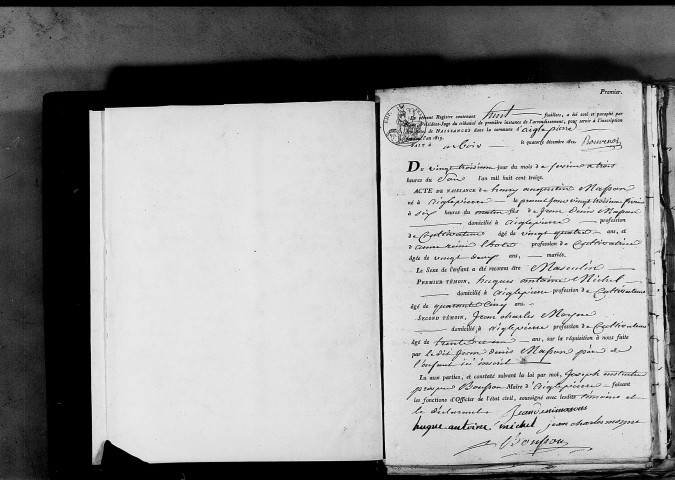 Premier.
Le présent Registre contenant huit feuillets, a été coté et paraphé par
Président-Juge du tribunal de première instance de l'arrondissement, pour servir à l'inscription
de NAISSANCES dans la commune d'aiglepierre
l'an 1813.
FAIT à arbois le quatorze décembre 1812. Bouvenot
Du vingt troisieme jour du mois de fevrier a trois
heures du Soir l'an mil huit cent treize.
ACTE DE NAISSANCE de henry augustin Masson
né à aiglepierre le jour vingt troisieme fevrier
à six heures du matin fils de Jean Denis Masson
domicilié à aiglepierre profession
de Cultivateur âgé de vingt quatre ans, et
d'anne profession de Cultivatrice
âgée de vingt ans, mariés.
Le Sexe de l'enfant a été reconnu être Masculin
PREMIER TÉMOIN, hugues antoine Michel
domicilié à aiglepierre profession de Cultivateur
âgé de quarante Cinq ans
SECOND TÉMOIN, Jean Charles Moyne
domicilié à aiglepierre profession de Cultivateur
âgé de ans, sur la réquisition à nous faite
par le dit Jean denis Masson père de
l'enfant
Lu aux parties, et constaté suivant la loi par moi, Joseph
prosper Bousson Maire d'aiglepierre faisant
les fonctions d'Officier de l'état civil, soussigné avec lesdits témoins et
le déclarant Jean denis masson
hugue antoine michel jean charles moyne
Bousson